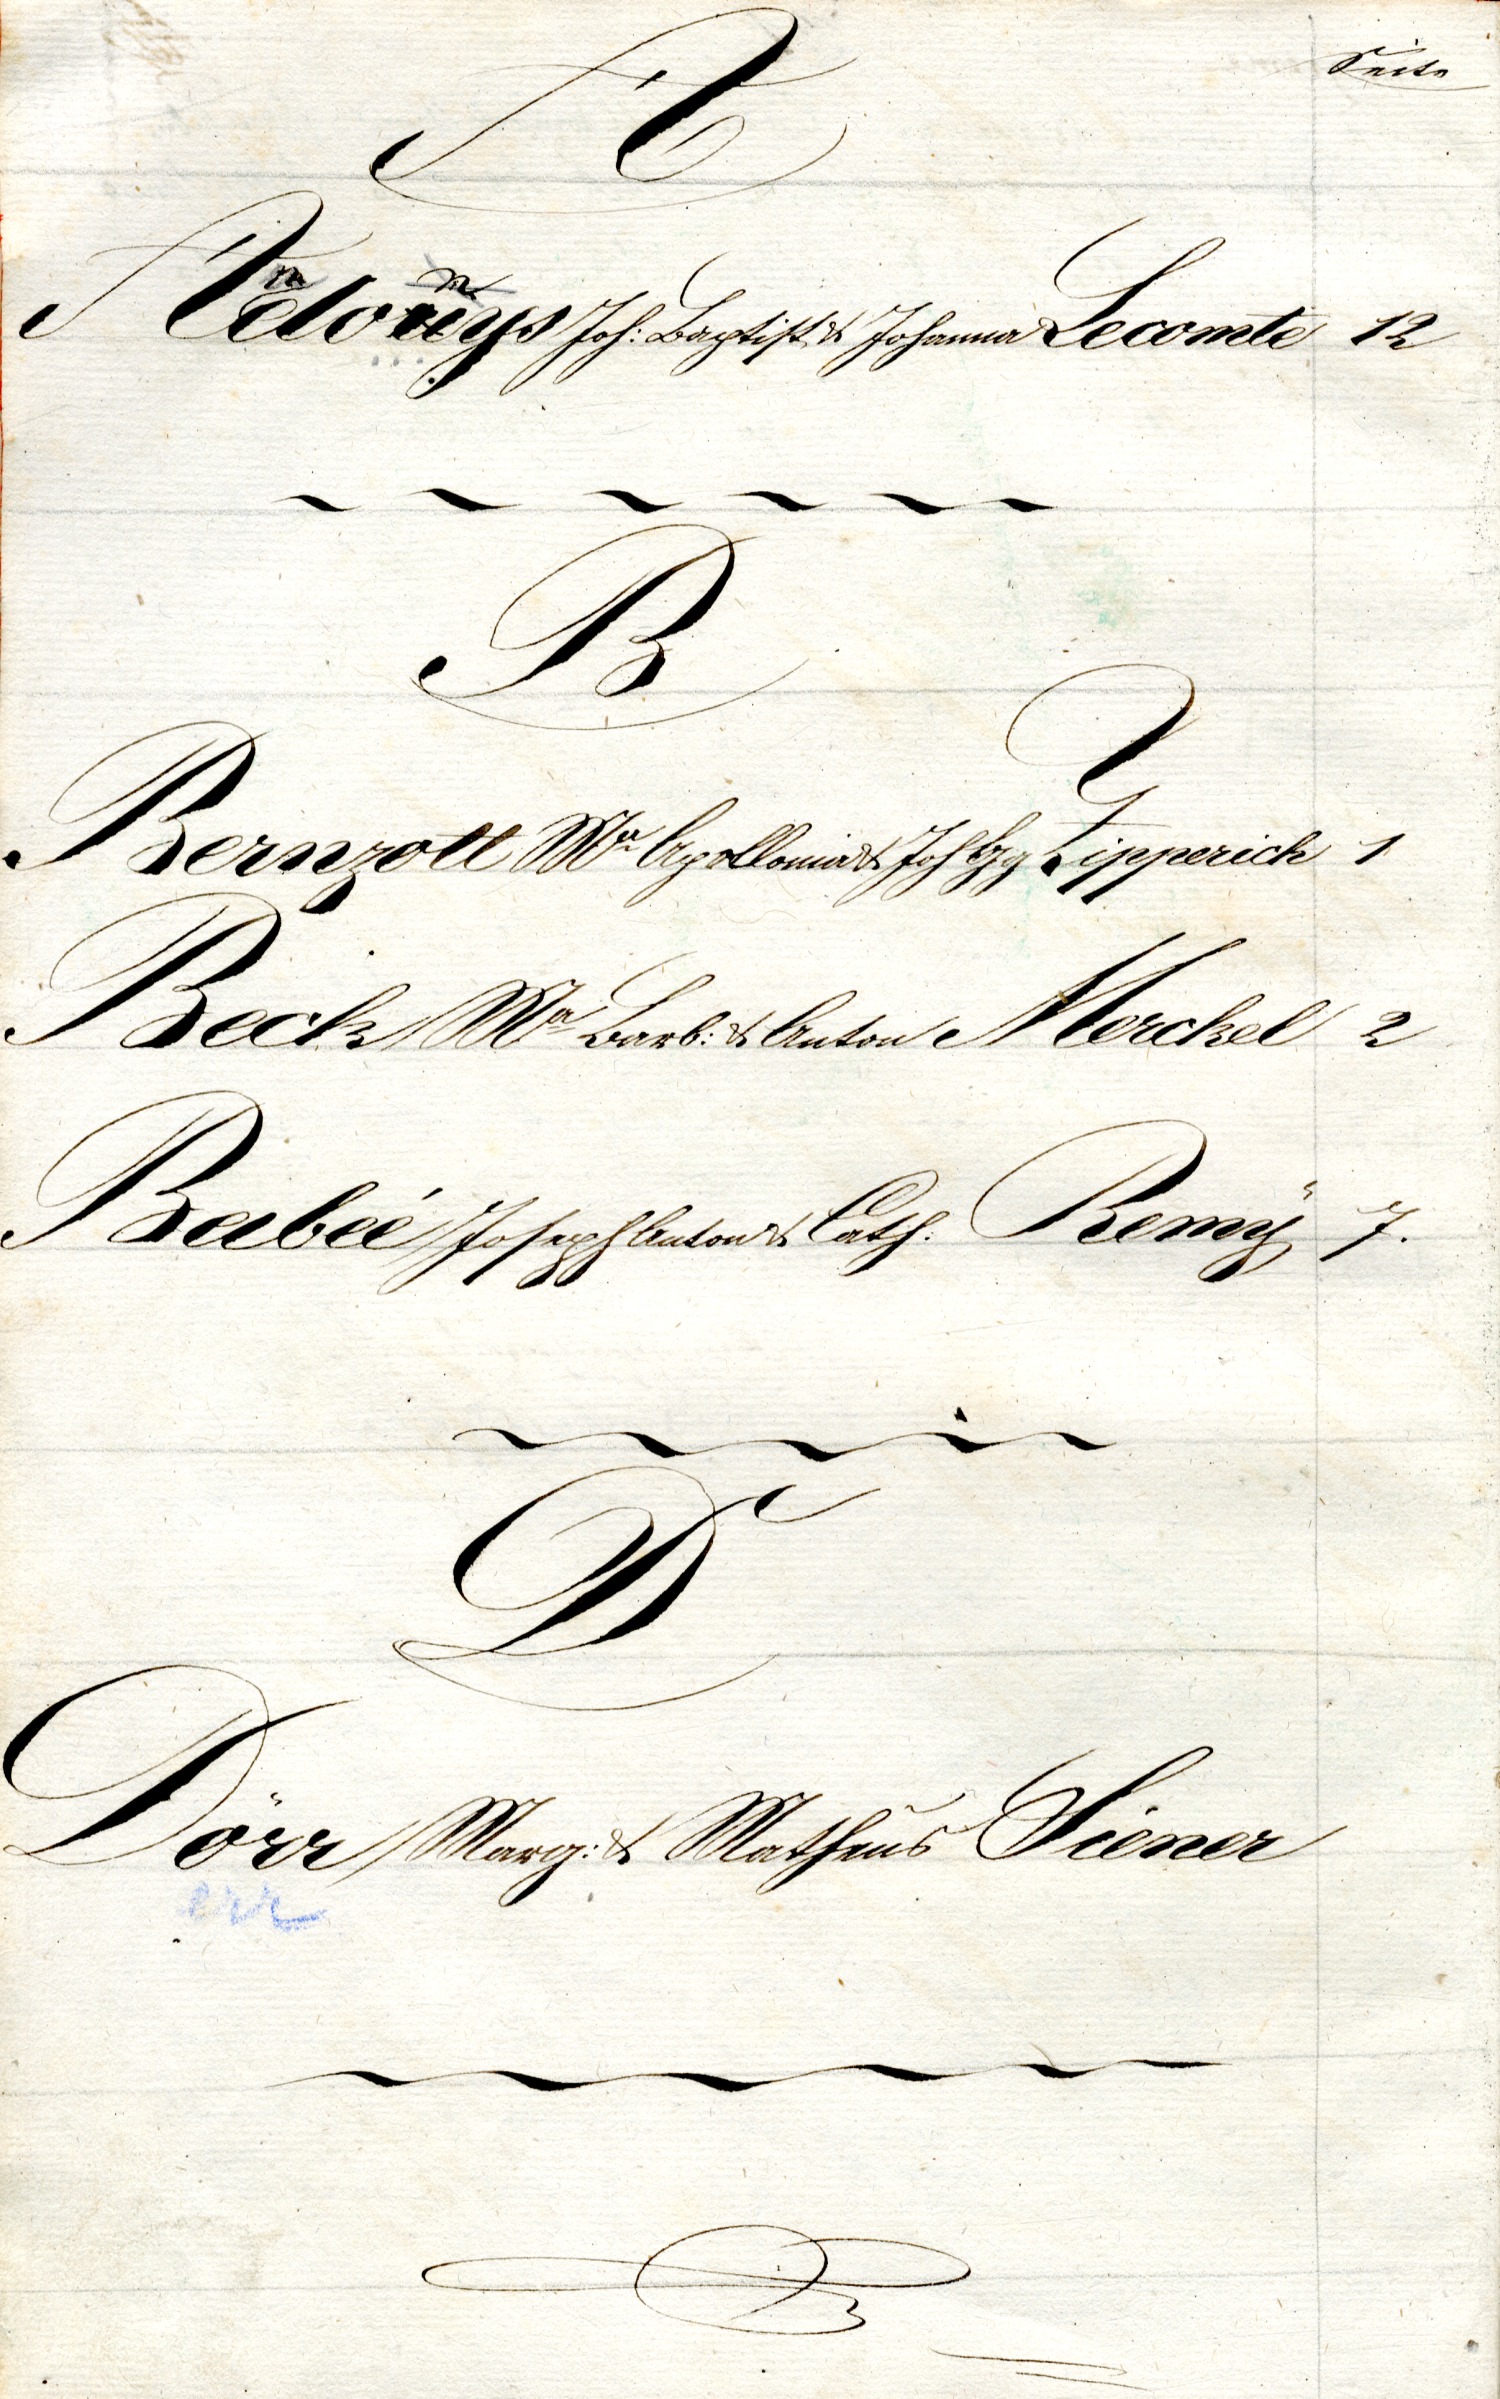 Seite
A
Joh: Baptist & Johanna Lecomte 12
B
Bernzott Mª Apollonia & Joh Gg Lipperich 1
Beck Mª Barb: & Anton Merckel 2
Beubeé Joseph Anton & Cath: Remÿ 7.
D
Dörr Marg: & Matheus Siener
err